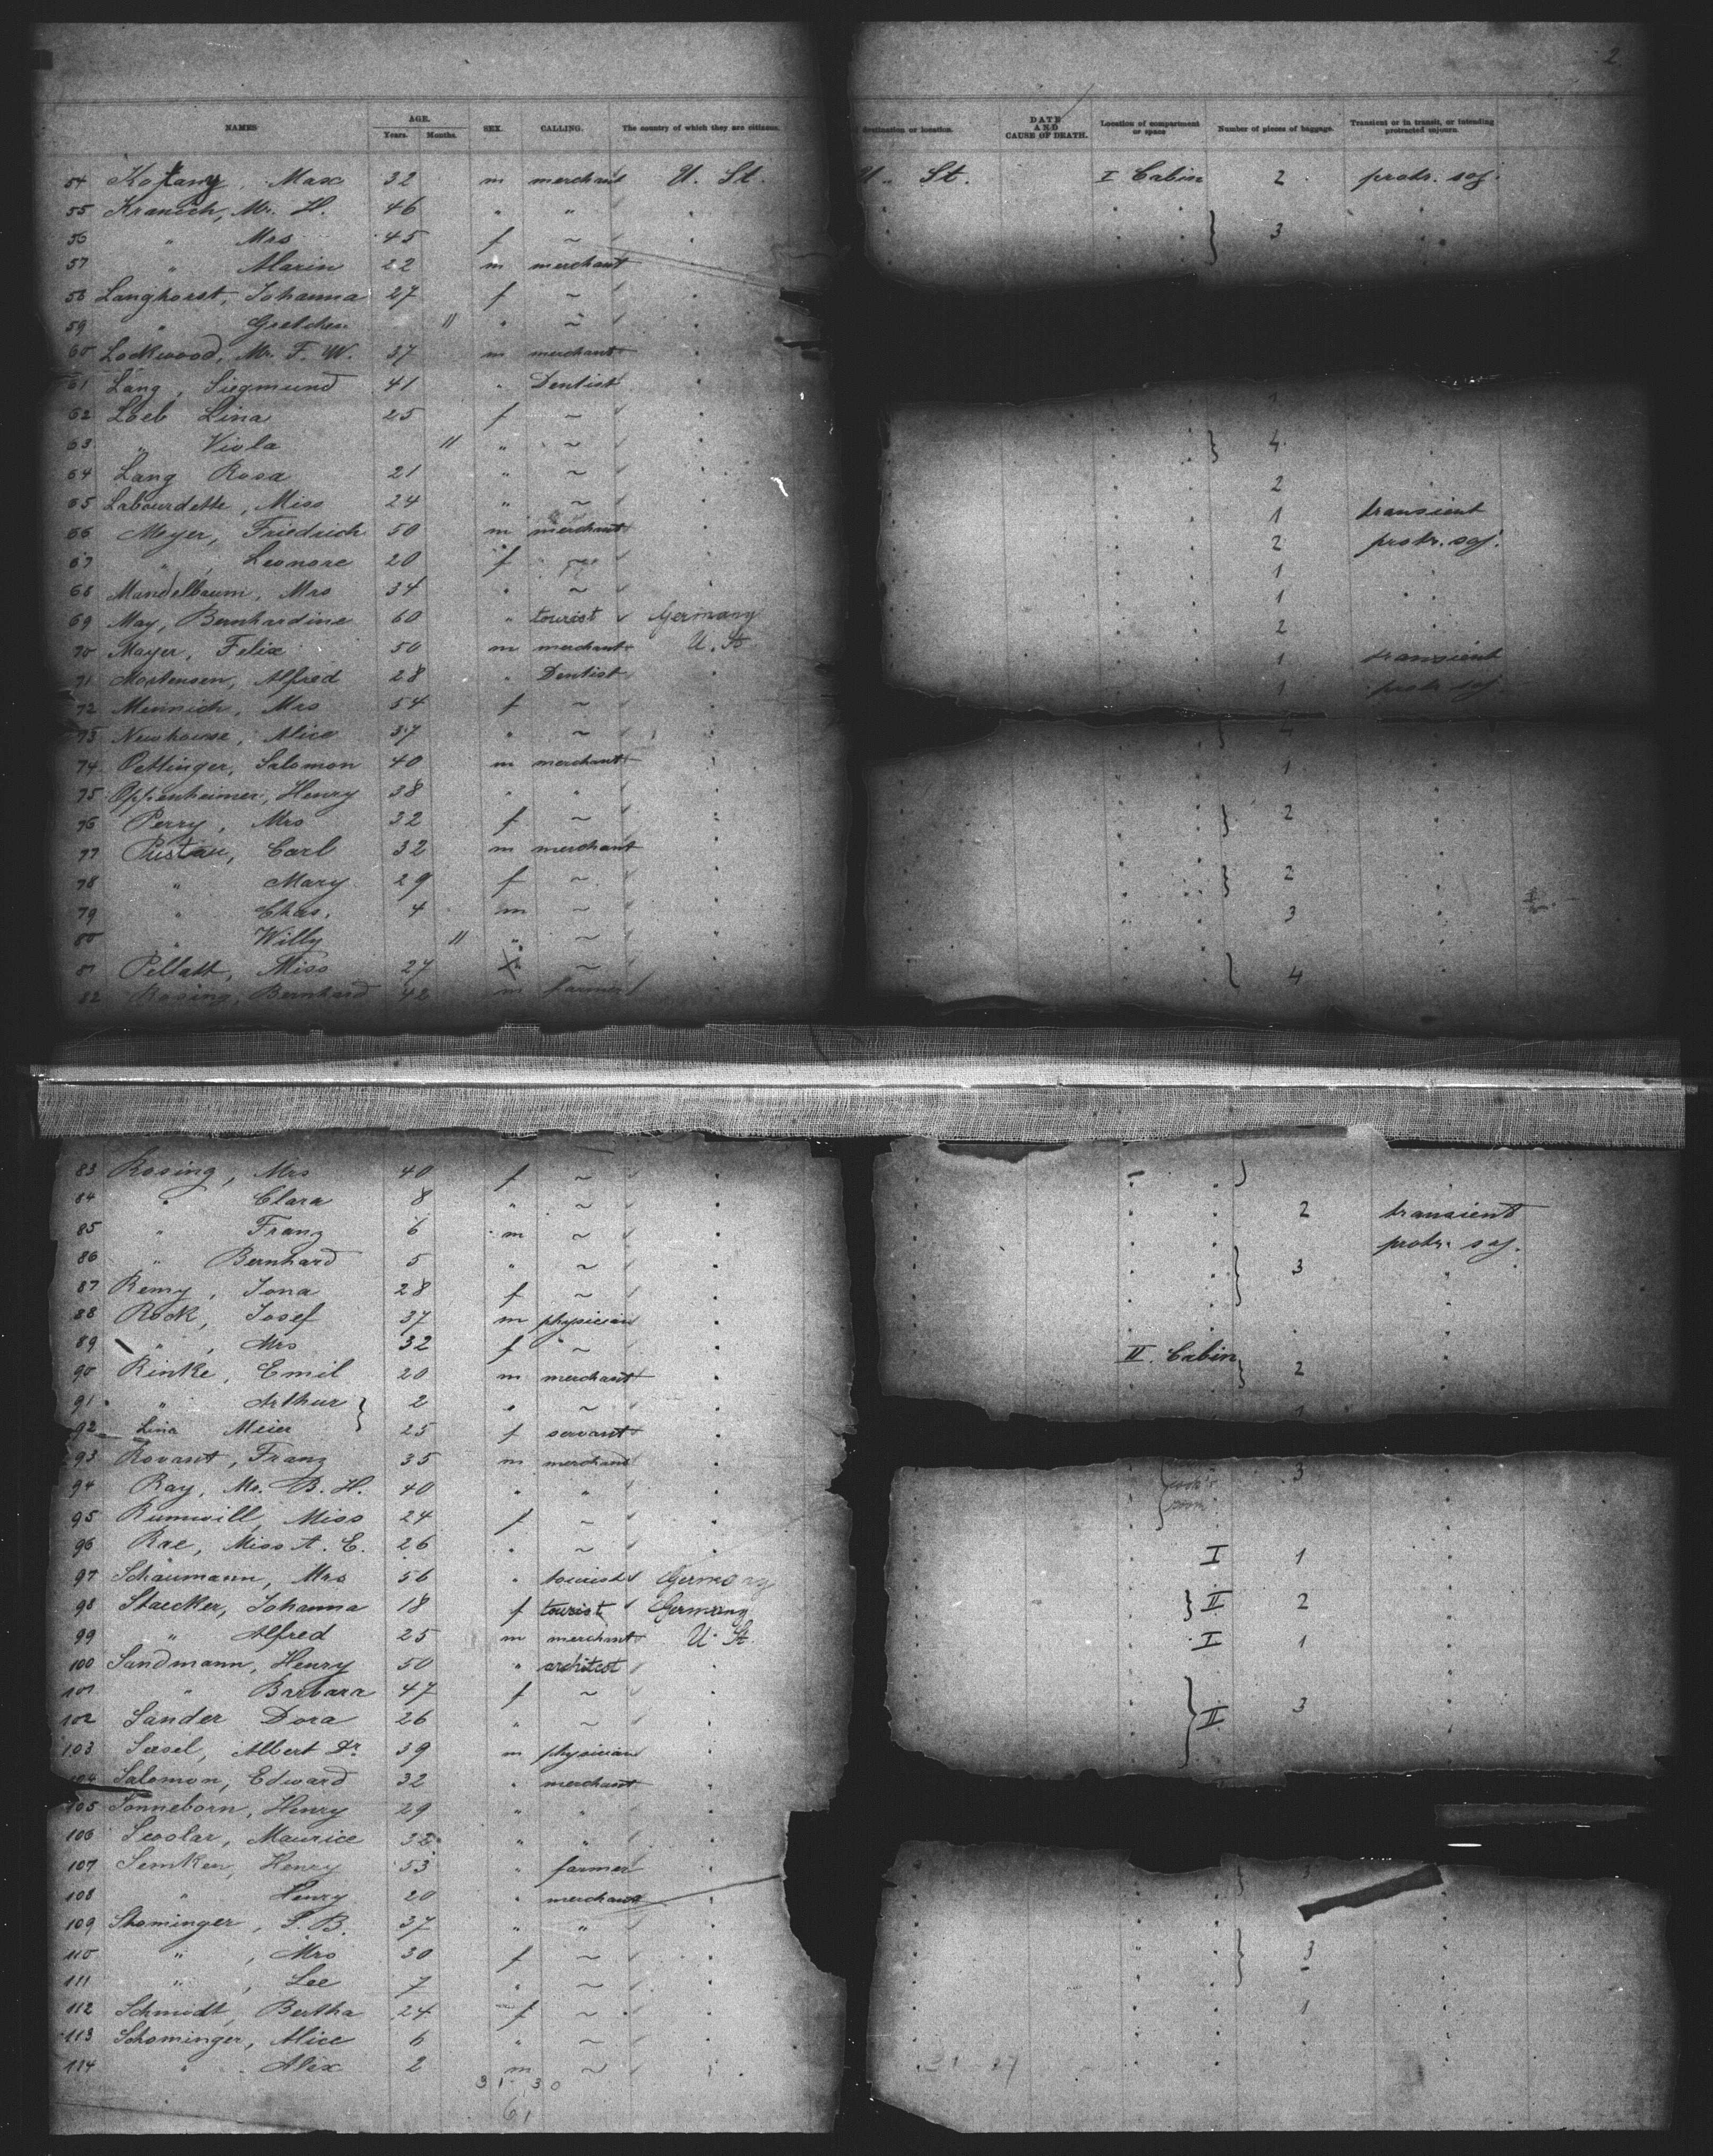 2
NAMES AGE. Years. Months. SEX. CALLING. The country of which they are citizens. destination or location. DATE AND CAUSE OF DEATH. Location of compartment or space Number of pieces of baggage. Transient or in transit, or intending protracted sojourn
54 Max 32 m merchant U. St. U. St. I Cabin 2 protr. soj.
55 Kranich, Mr. H. 46 " "
56 " Mrs 45 f ~ } 3
57 " 22 m merchant
58 Langhorst, Johanna 27 f ~
59 " Gretchen 11 " ~
60 Lockwood, Mr. F. W. 37 m merchant
61 Lang, Siegmund 41 " Dentist
62 Loeb Lina 25 f ~
63 " Viola 11 " ~ } 4
64 Lang Rosa 21 " ~ 2
65 Labourdette, Miss 24 " ~ 1 transient
66 Meyer, Friedrich 50 m merchant 2 protr. soj.
67 " Leonore 20 f ~ 1
68 Mandelbaum, Mrs 34 " ~ 1
69 May, Bernhardine 60 " tourist Germany 2
70 Mayer, Felix 50 m merchant U. St 1 transient
71 Mortensen, Alfred 28 " Dentist 1 protr. soj.
72 Mrs 54 f ~
73 Newhouse, Alice 37 " ~ }
74 Oettinger, Salomon 40 m merchant 1
75 Oppenheimer, Henry 38 " "
76 Perry, Mrs 32 f ~ } 2
77 Pustau, Carl 32 m merchant
78 " Mary 29 f ~ } 2
79 " Chas. 4 m ~ 3
80 " Willy 11 " ~
81 Pellatt, Miss 27 ~ } 4
82 Rosing, Bernhard 42 m farmer
83 Rosing, Mrs 40 f ~ }
84 " Clara 8 " ~ 2 transient
85 " Franz 6 m ~ protr. soj.
86 " Bernhard 5 " ~ } 3
87 Remy, Jona 28 f ~
88 Rock, Josef 37 m physician
89 " , Mrs 32 f ~ II. Cabin
90 Rinke, Emil 20 m merchant } 2
91 " Arthur } 2 " ~
92 Lina Meier 25 f servant
93 Franz 35 m merchant } 3
94 Ray, Mr. B. H. 40 " "
95 Miss 24 f ~
96 Rae, Miss A. E. 26 " ~ I 1
97 Schaumann, Mrs 56 " tourist Germany
98 Staecker, Johanna 18 f tourist Germany } II 2
99 " Alfred 25 m merchant U. St. I 1
100 Sandmann, Henry 50 " architect
101 " Barbara 47 f ~
102 Sander Dora 26 " ~ } II 3
103 Albert Dr 39 m physician
104 Salomon, Edward 32 " merchant
105 Sonneborn, Henry 29 " "
106 Maurice 32 " "
107 Semken, Henry 53 " farmer
108 " Henry 20 " merchant
109 S. B. 37 " "
110 " , Mrs 30 f ~ } 3
111 " , Lee 7 " ~
112 Schmidt, Bertha 24 f ~ 1
113 Schominger, Alice 6 " ~
114 " Alex 2 m ~
31 30
61